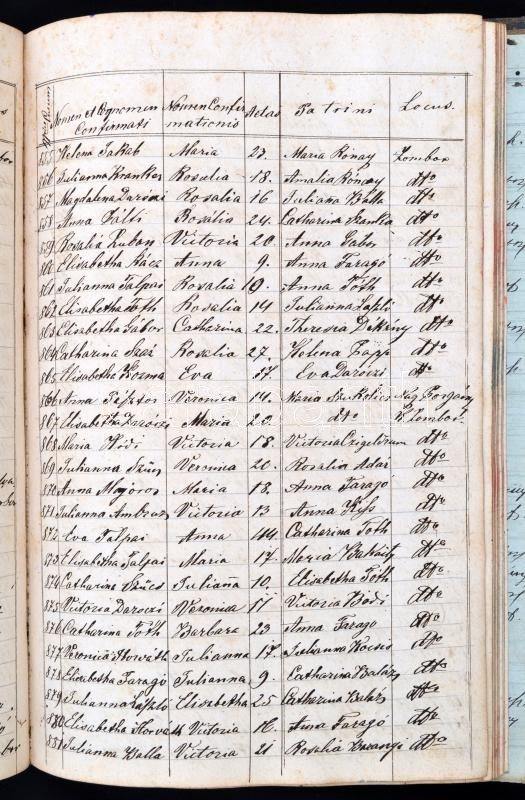 Nomen et Cognomen Confirmati Nomen Confirmationis Aetas Patrini Locus.
855 Helena Jakab Maria 23. Maria Rónay Zombor
856 Julianna Maria Rosalia 18. Amalia Rónay dtto
857 Magdalena Daróczi Rosalia 16 Juliana Balla dtto
858 Anna Rosália 24. Catharina dtto
859 Rosalia Victoria 20. Anna Gabor dtto
860 Elisabetha Rácz Anna 9. Anna Faragó dtto
861 Julianna Talpai Rosalia 10. Anna Tóth dtto
862 Elisabetha Tóth Rosalia 14 Julianna László dtto
863 Elisabetha Gábor Catharina 22. Theresia Dékány dtto
864 Catharina Rosalia 27. Helena Papp dtto
865 Elisabetha Kozma Eva 17. Eva Daróczi dtto
866 Anna Veronica 14. Maria
867 Elisabetha Daróczi Maria 20. dtto K. Zombor.
868 Maria Victoria 18. Victoria dtto
869 Julianna Szűcs Veronica 20. Rosalia Adár dtto
870 Anna Majoros Maria 18. Anna Faragó dtto
871 Julianna Ambrus Victoria 13 Anna Kiss dtto
872 Eva Talpai Anna 14. Catharina Tóth dtto
873 Elisabetha Talpai Maria 17. Maria dtto
874 Catharina Szűcs Julianna 10. Elisabetha Tóth dtto
875 Victoria Daróczi Veronica 11 Victoria Bódi dtto
876 Catharina Tóth Barbara 23 Anna Faragó dtto
877 Veronica Horváth Julianna 17. Julianna Kocsis dtto
878 Elisabetha Faragó Julianna 9. Catharina Balázs dtto
879 Julianna László Elisabetha 25 Catharina Balázs dtto
880 Elisabetha Horváth Victoria 16. Anna Faragó dtto
881 Julianna Balla Victoria 21 Rosalia dtto